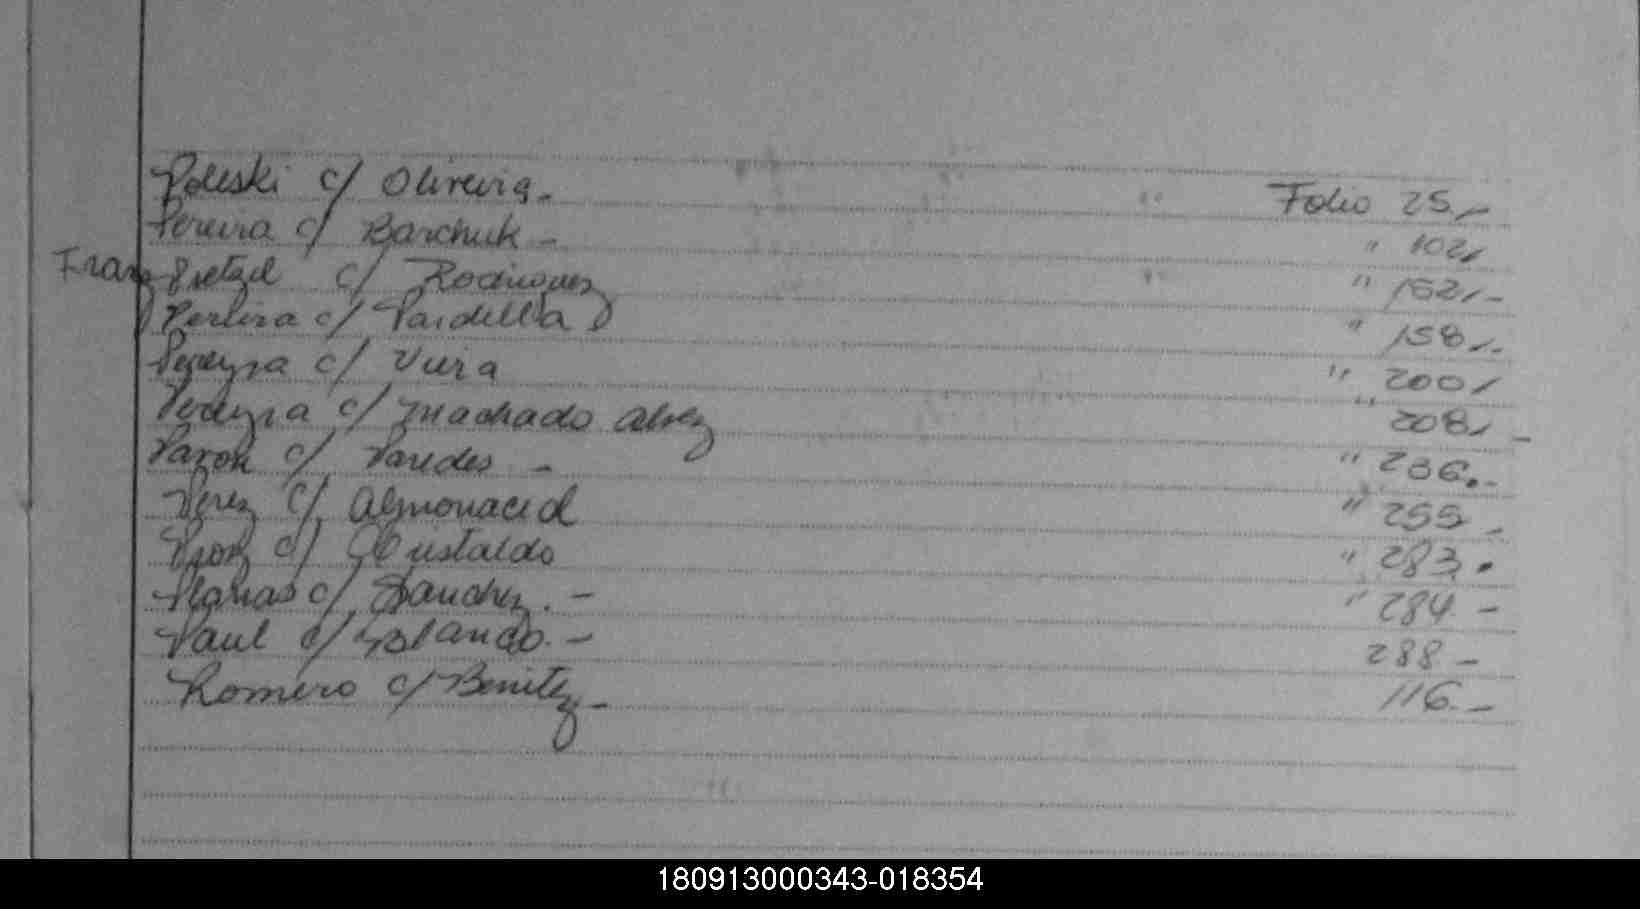 Poleski c/ Olireira.- Folio 25.-
Pereira c/ Barchuk - " 102.-
Franz Pretzel c/ Rodriguez " 152.-
Perlira c/ Pardella " 158.-
Pereyra c/ Vieira " 200.-
Pereyra c/ Machado Alvez " 208.-
Pazon c/ Paredes - " 236.-
Perez c/ Almonacid " 255.-
c/ " 283.
c/ Sanchez.- " 284.-
Paul c/ Blanco.- 288-
Romero c/ Benitez- 116.-
180913000343-018354